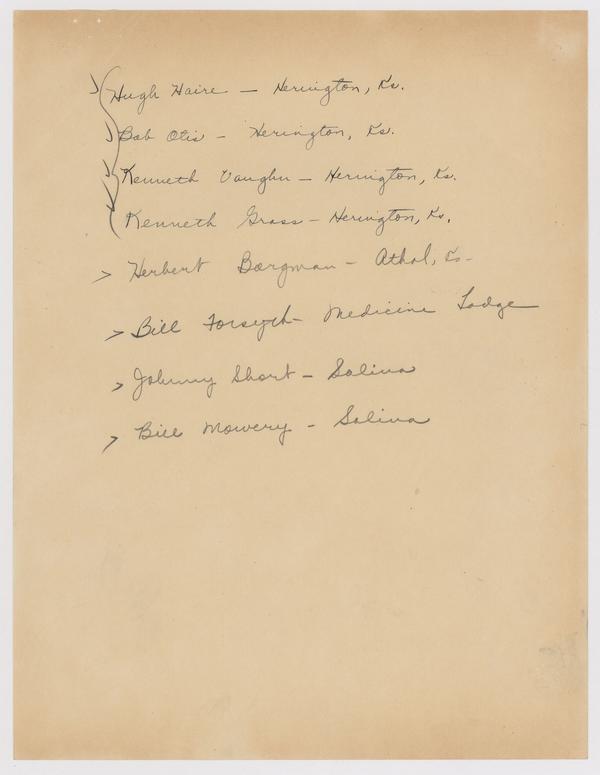 Hugh Haire - Herington, Ks.
Bob Otis - Herington, Ks.
Kenneth Vaughn - Herington, Ks.
Kenneth Grass - Herington, Ks.
Herbert Bargman - Athol, Ks.
Bill Forsyth - Medicine Lodge
Johnny Short - Salina
Bill Mowery - Salina